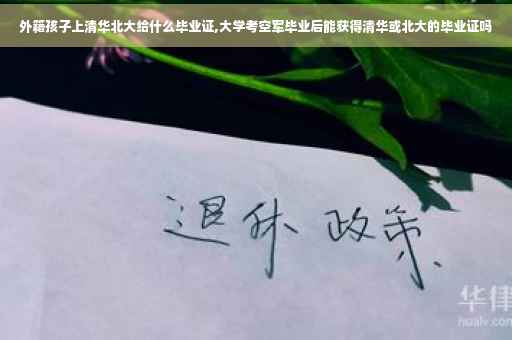 外籍孩子上清华北大给什么毕业证,大学考空军毕业后能获得清华或北大的毕业证吗
退休 政策
华律
hualv.com